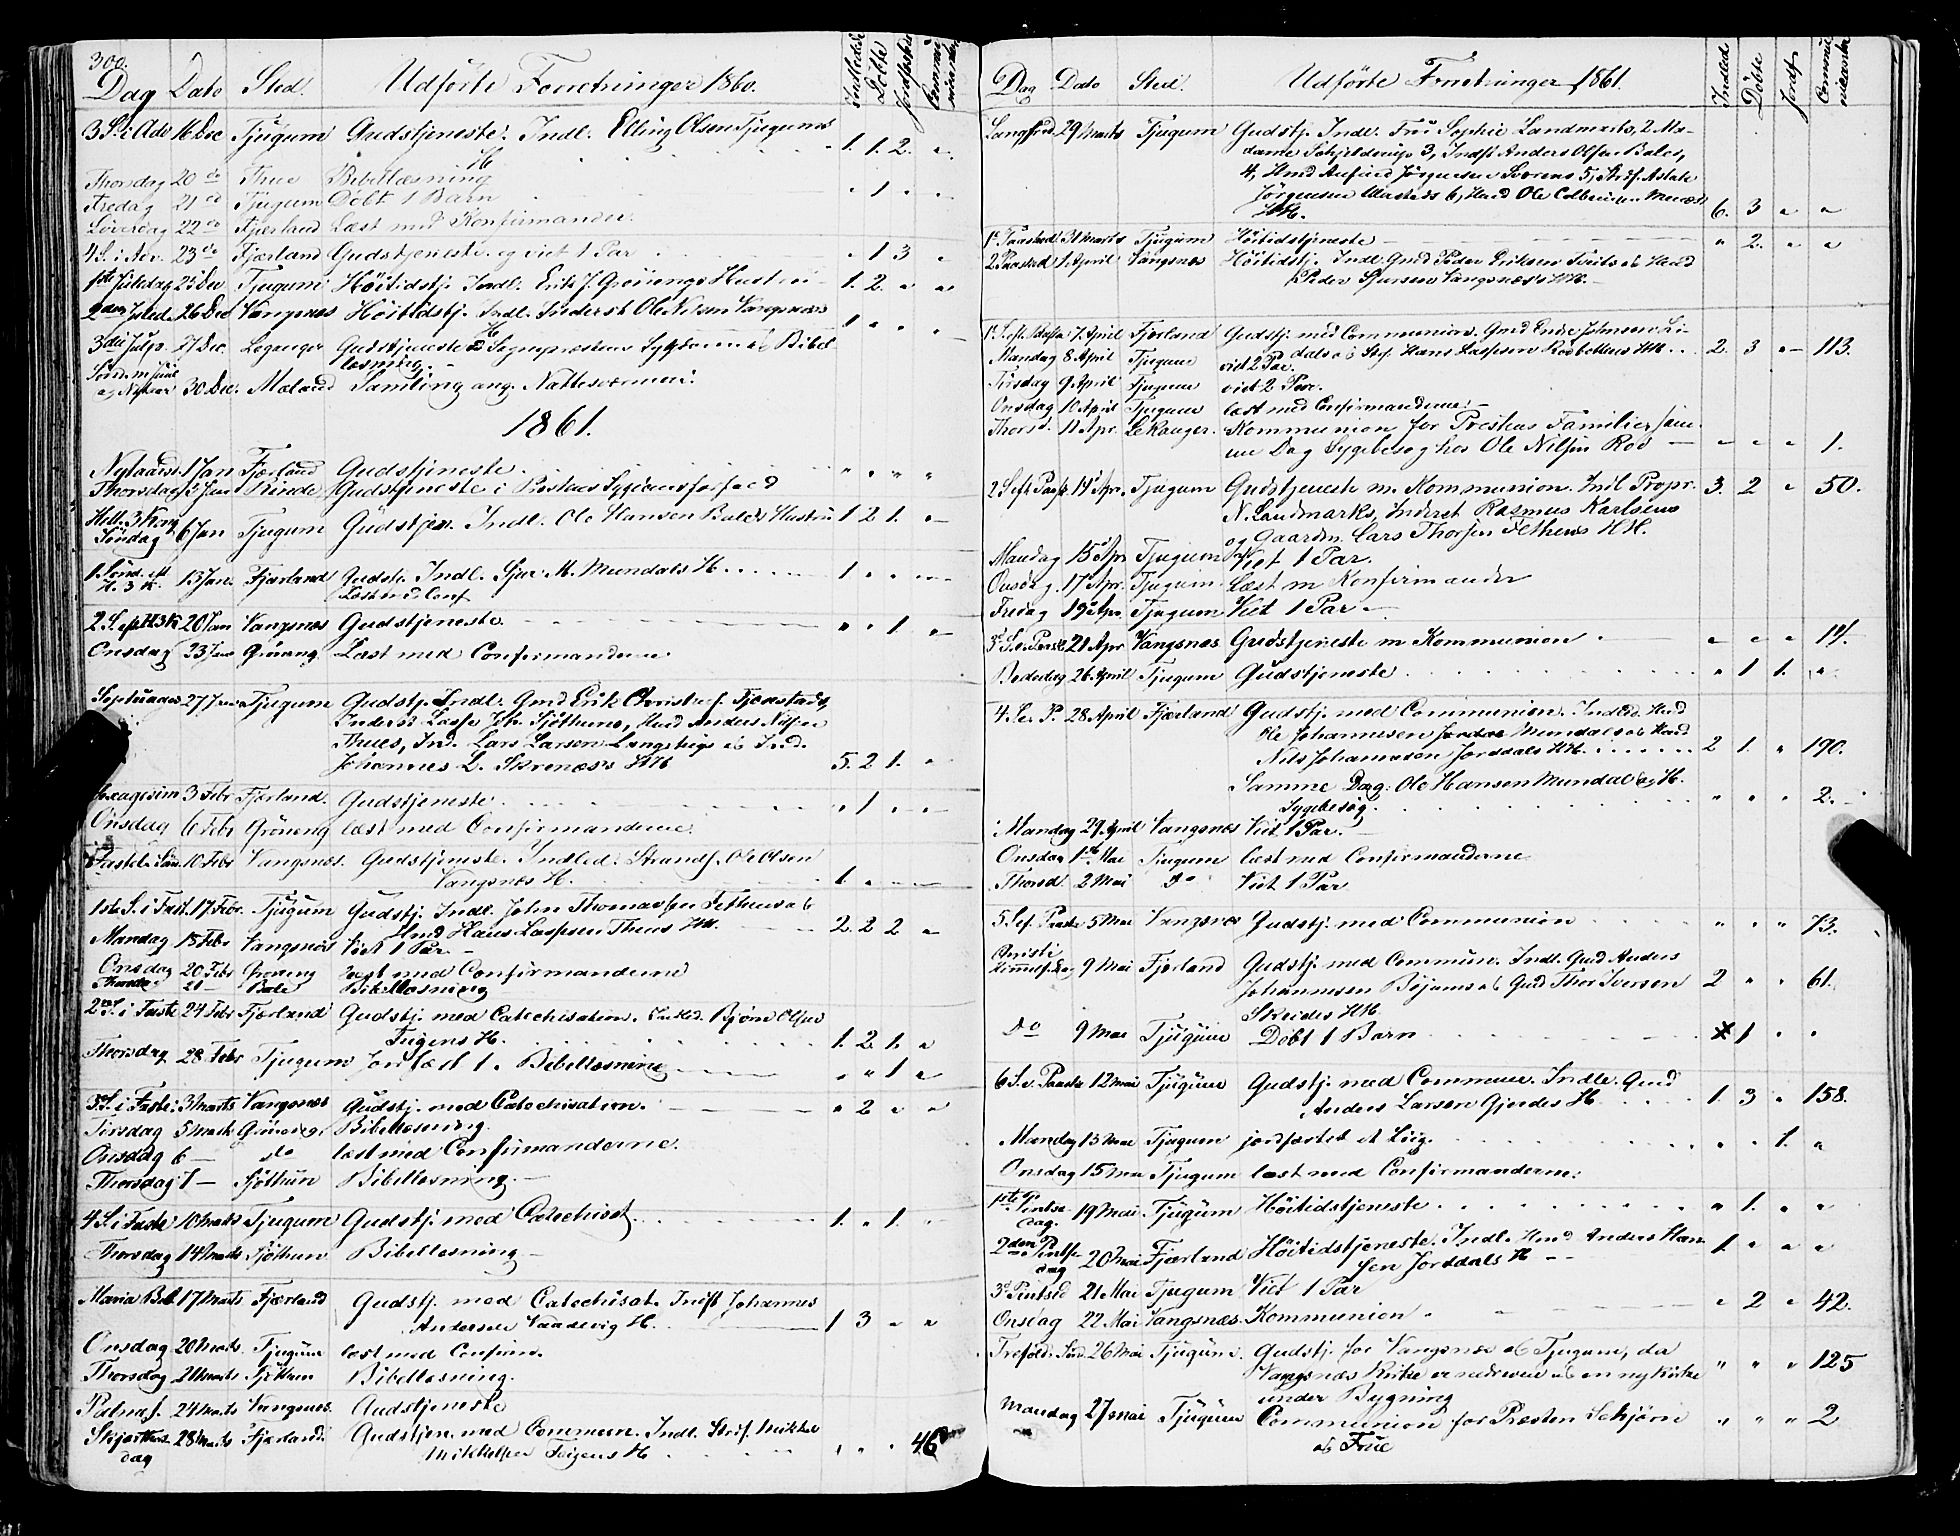 300.
Dag Dato Sted. Udførte Forretninger 1860. Indledede Døbte Jordfæstede Communicanter
3 S. i Adv 16 Dec Tjugum Gudstjeneste. Indl. Elling Olsen Tjugums
H 1. 1. 2. "
Thorsdag 20 do Thue Bibellæsning
Fredag 21 do Tjugum Døbt 1 Barn " 1 " "
Løverdag 22 do Fjærland Læst med Konfirmander.
4 S. i Adv. 23 do Fjærland Gudstjeneste og viet 1 Par " 1 3 "
1ste Juledag 25 Dec Tjugum Høitidstj. Indl. Erik J. Grøneng Hustrui 1. 2. " "
2den Juled. 26 Dec Vangsnes Høitidstj. Indl. Inderst Ole Nilsen Vangsnæs
H 1 " " "
3die Jule 27 Dec. Leganger Gudstjeneste Sognepræstens Sygdom og Bibel
læsning.
Sønd. m. Juul
og Nytaar 30 Dec. Mæland Samling ang. Nattesværmeri.
1861.
Nytaarsd. 1 Jan Fjærland Gudstjeneste " " " "
Thorsdag 3 Jan Rinde Gudstjeneste i Prestens Sygdomsforfald
Hell. 3 Kong
Søndag 6 Jan Tjugum Gudstjen. Indl. Ole Hansen Bales Hustru 1 2 1. "
1. Sønd. eft
H. 3 K. 13 Jan. Fjærland Gudstj. Indl. Sjur M. Mundals H. 1 " " "
Læst med Conf
2. S. ef H3K 20 Jan Vangsnes Gudstjeneste " " 1 "
Onsdag 23 Jan Grøneng Læst med Confirmanderne.
Septuages 27 Jan Tjugum Gudstj. Indl. Gmd Erik Christens. Tjønstads
Inderst Lasse Joh. Sjøthuns, Husd Anders Nilsen
Thues, Ind. Lars Larsen Langehigs og Ind.
Johannes L. Skrenæs's HH 5. 2 1. "
Sexagesim 3 Febr Fjærland. Gudstjeneste " 1 " "
Onsdag 6 Febr Grøneng læst med Confirmanderne.
Fastel. Søn 10 Febr Vangsnæs. Gudstjeneste. Indled. Strands. Ole Olsen
Vangsnæs H. 1 " " "
1ste S. i Fast. 17. Febr. Tjugum Gudstj. Indl. John Thomassen Fethens og
Hmd Hans Lassesen Thues HH. 2. 2 2 "
Mandag 18 Febr Vangsnæs Viet 1 Par
Onsdag 20 Febr Grøneng læst med Confirmanderne
Thorsdag 21 — Bale Bibellæsning
2den S. i Faste 24 Febr Fjærland Gudstj. med Catechisation. Indled. Bjørn Olsen
Tugens H. 1. 2 1. "
Thorsdag 28 Febr Tjugum Jordfæst 1. Bibellæsning " " 1 "
3die S. i Faste 3 Marts Vangsnæs Gudstj. med Catechisation. " 2 " "
Tirsdag 5 Marts Grøneng. Bibellæsning.
Onsdag 6 — do læst med Confirmanderne.
Thorsdag 7 — Sjøthun Bibellæsning. —
4 S. i Faste 10 Marts Tjugum Gudstj. med Catechisat. 1. " 1. "
Thorsdag 14 Marts Sjøthun Bibellæsning —
Maria Beb. 17 Marts Fjærland Gudstj. med Catechisat. Indst Johannes
Andersen Vaadevig H. 1 3 " "
Onsdag 20 Marts Tjugum læst med Confirm.
Thorsdag 21 Marts Sjøthun Bibellæsning.
Palmes. 24 Marts Vangsnes. Gudstjeneste
Skjærthors
dag 28 Marts Fjærland. Gudstjen. med Commun. Indl. Strds. Mikkel
Mikkelsen Feigens H " " " 46
Dag Dato Sted. Udførte Forretninger 1861. Indled. Døbte Jordf. Communicanter
Langfred. 29 Marts Tjugum Gudstj. Indl. Frü Sophie Landmarks, 2 Ma-
dame Schjelderup 3, Indst Anders Olsen Bales,
4, Hmd Anfind Jørgensen Sværens 5, Strds. Aslak
Jørgensen Ulvesteds 6, Husd Ole Colbeinsen Menæs
HH. 6. 3 " "
1ste Paaskd. 31 Marts Tjugum Høitidstjeneste " 2. " "
2. Paaskd. 1 April Vangsnes Høitidstj. Indl. Gmd Peder Eriksen Tveits og Husd
Peder Sjursen Vangsnæs's HH. —
1ste S. eft Paaske 7. April Fjærland Gudstj. med Communion. Gmd Endre Johnsen Li-
dals og Strds. Hans Lassesen Rødbottens HH. 2. 3 " 113.
Mandag 8 April Tjugum viet 2 Par.
Tirsdag 9 April Tjugum viet 2 Par.
Onsdag 10 April Tjugum læst med Confirmanderne. —
Thorsd. 11 Apr. Lekanger. Kommunion for Prestens Familie, sam-
me Dag Sygebesøg hos Ole Nilsen Rød — " " " 1.
2 S. eft Paaske 14 Apr. Tjugum Gudstjeneste m. Kommunion. Indl Propr. 3. 2 " 50.
N. Landmarks, Inderst Rasmus Karlsens
og Gaardm. Lars Thorsen Fethens HH.
Mandag 15 Apr Tjugum Viet 1 Par.
Onsdag 17 Apr. Tjugum Læst m Konfirmander
Fredag 19 Apr Tjugum Viet 1 Par —
3 S. e. Paaske 21 Apr Vangsnes Gudstjeneste m Kommunion " " " 14.
Bededag 26 April Tjugum Gudstjeneste " 1 1. "
4. S. e. P. 28 April Fjærland Gudstj. med Communion. Indled. Husd
Ole Johannesen Mundals og Husd
Nils Johannesen Jorddals HH. 2 1. " 190.
Samme Dag. Ole Hansen Mundal og H.
Sygebesøg. " " " 2.
Mandag 29 April Vangsnæs Viet 1 Par. —
Onsdag 1ste Mai Tjugum læst med Confirmanderne
Thorsd. 2 Mai Do Viet 1 Par
5. S. ef. Paaske 5 Mai Vangsnæs Gudstj. med Communion " " " 73.
Christi
Himmelf. Dag 9 Mai Fjærland Gudstj. med Commun. Indl. Gmd Anders
Johannesen Bøjums og Gmd Thor Iversen 2 " " 61.
Skeides HH
Do 9 Mai Tjugum Døbt 1 Barn 1 " "
6 S. e. Paaske 12 Mai Tjugum Gudstj. med Commun. Indle. Gmd
Anders Larsen Gjerdes H. 1. 3 " 158.
Mandag 13 Mai Tjugum jordfæstet et Liig. " " 1. "
Onsdag 15 Mai Tjugum læst med Confirmanderne.
1ste Pintse
dag. 19 Mai. Tjugum Høitidstjeneste " 1. " "
2den Pintse
dag 20 Mai Fjærland Høitidstjeneste. Indl. Hmd Anders Han-
sen Jorddals H. — 1. " " "
3die Pintsed 21 Mai Tjugum Viet 1 Par
Onsdag 22 Mai Vangsnæs. Kommunion " 2 " 42.
Trefold. Sønd. 26 Mai Tjugum. Gudstj. for Vangsnæs og Tjugum, da
Vangsnæs Kirke er nedreven og en ny Kirke " " " 125
under Bygning
Mandag 27 Mai Tjugum Communion for Præsten Schjørn " " " 2
og Frue